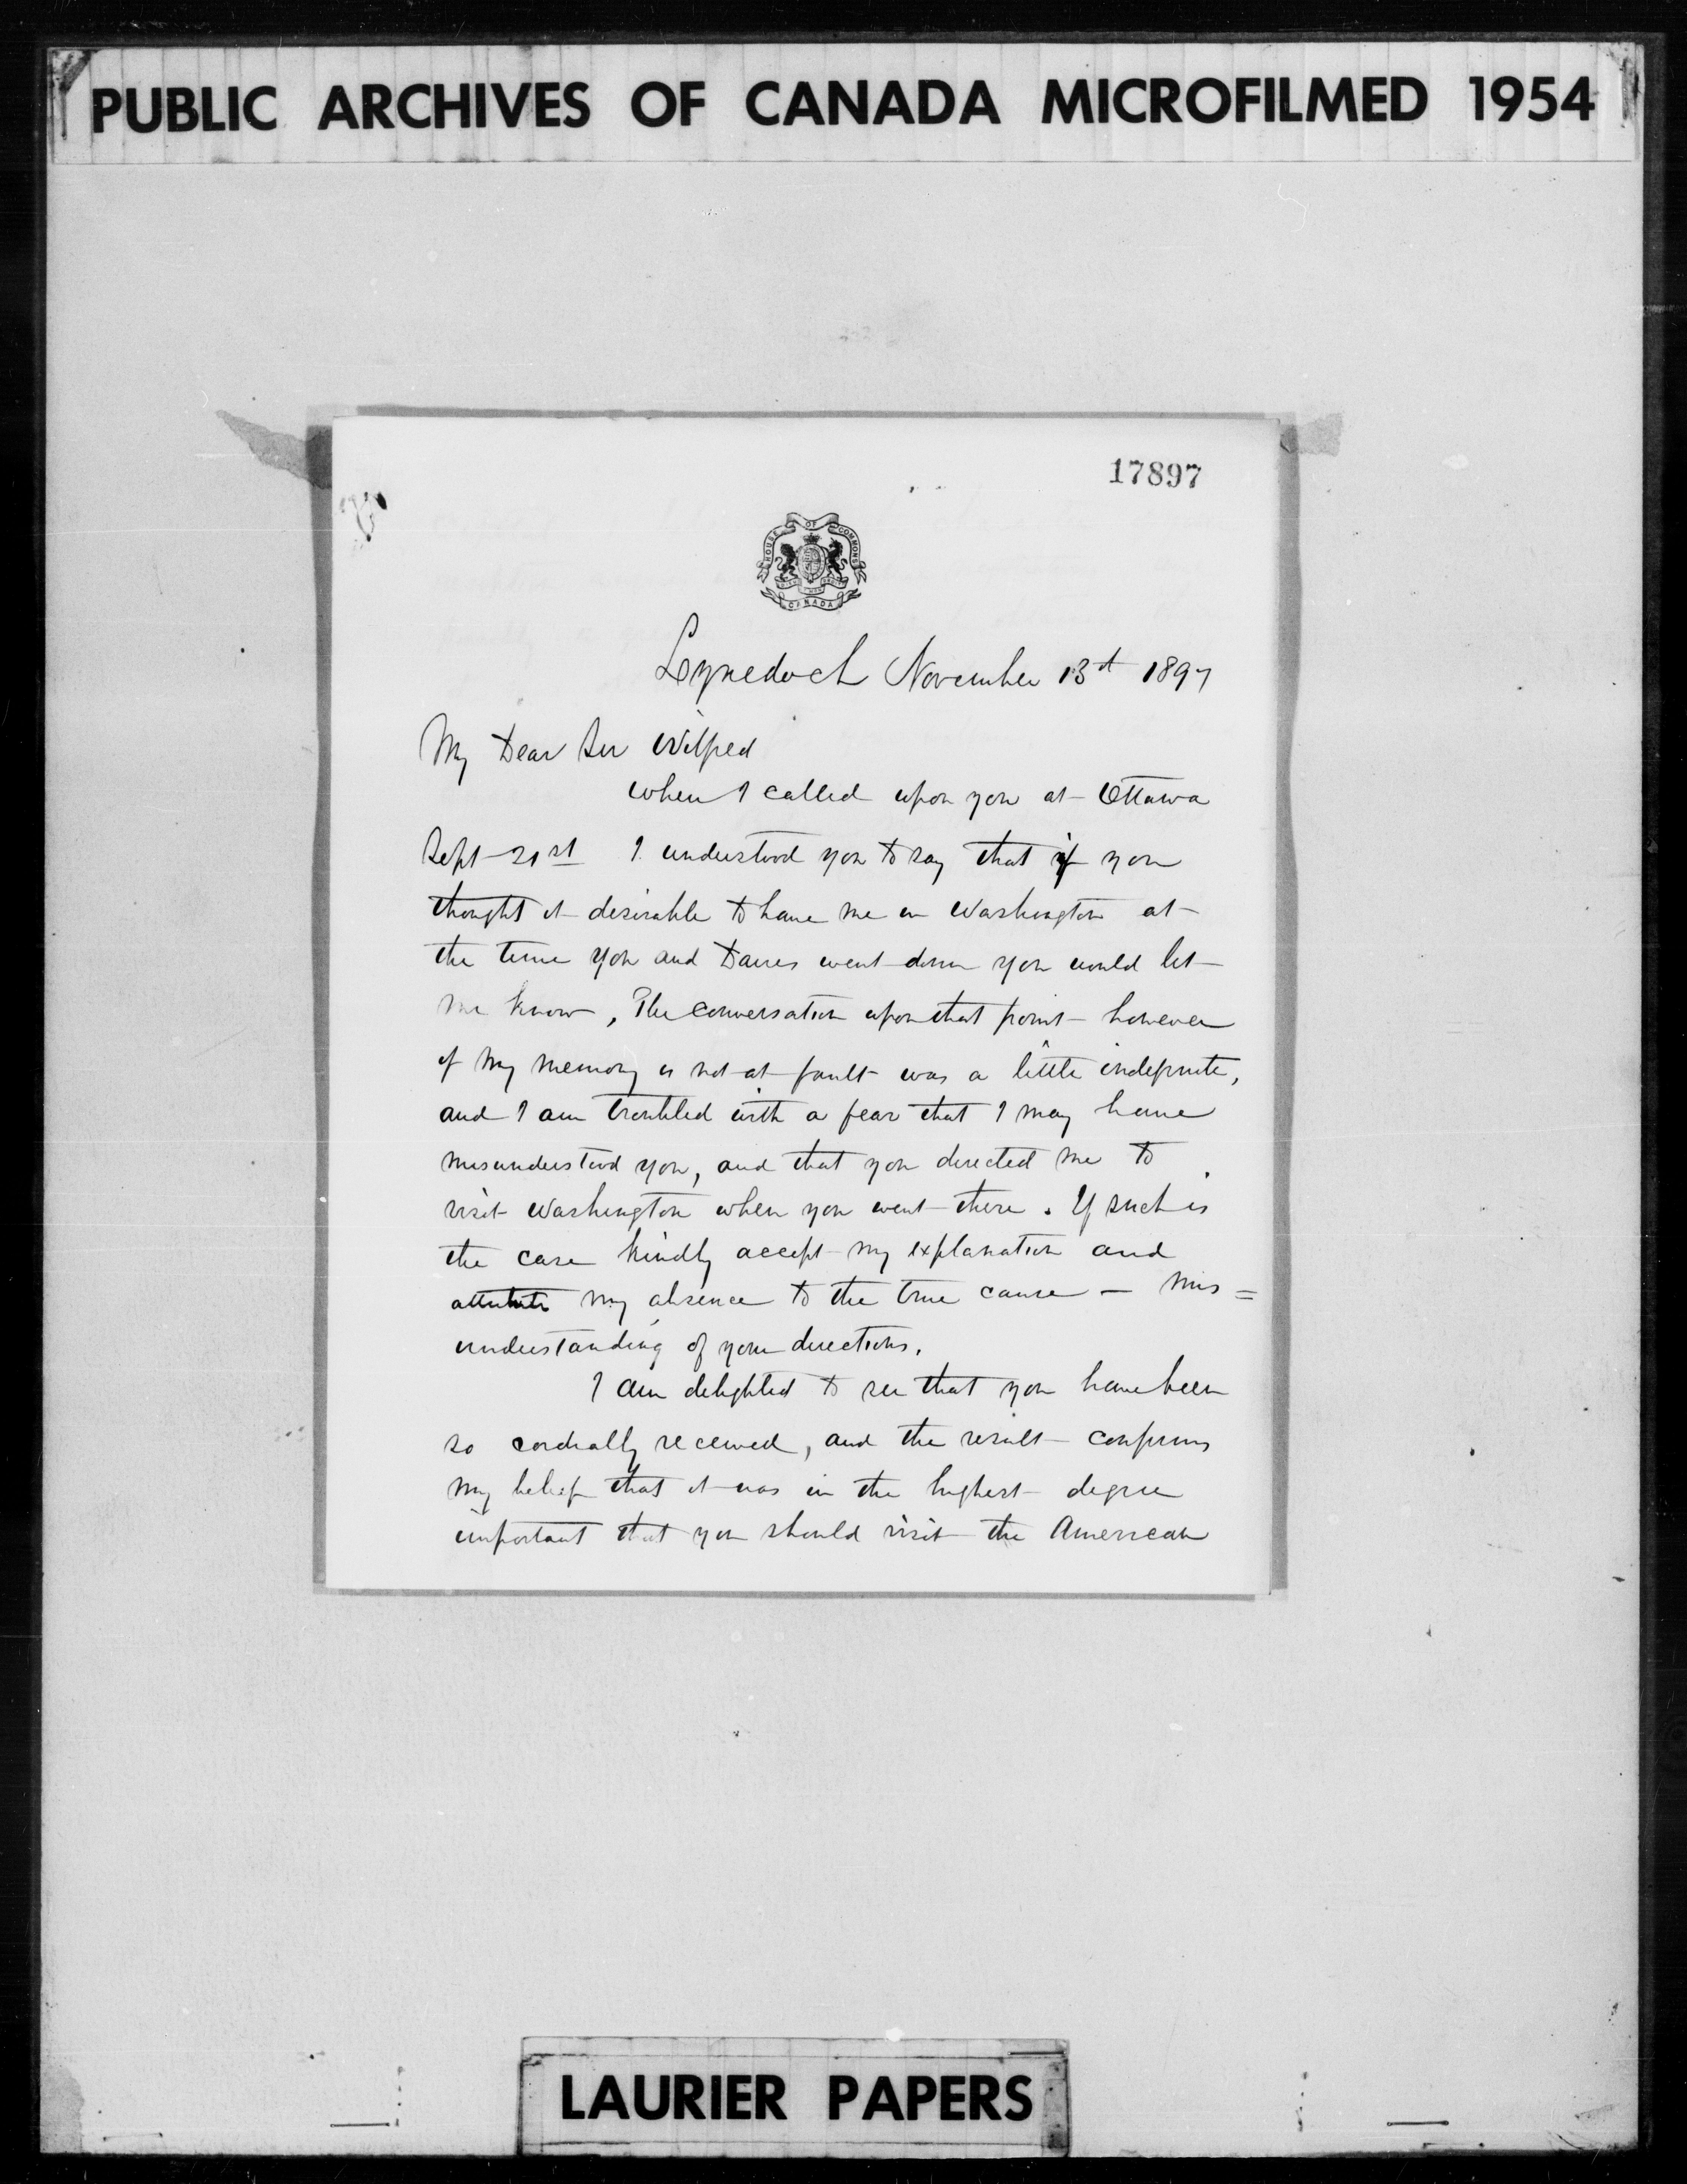 PUBLIC ARCHIVES OF CANADA MICROFILMED 1954
17897
HOUSE OF COMMONS
CANADA
Lynedoch November 13th 1897
My Dear Sir Wilfred
When I called upon you at Ottawa
Sept 21st I understood you to say that if you
thought it desirable to have me in Washington at
the time you and Davies went down you would let
me know, The conversation upon that point however
if my memory is not at fault was a little indefinite,
and I am troubled with a fear that I may have
misunderstood you, and that you directed me to
visit Washington when you went there. If such is
the case kindly accept my explanation and
attribute my absence to the true cause — mis=
understanding of your directions.
I am delighted to see that you have been
so cordially received, and the result confirms
my belief that it was in the highest degree
important that you should visit the American
LAURIER PAPERS